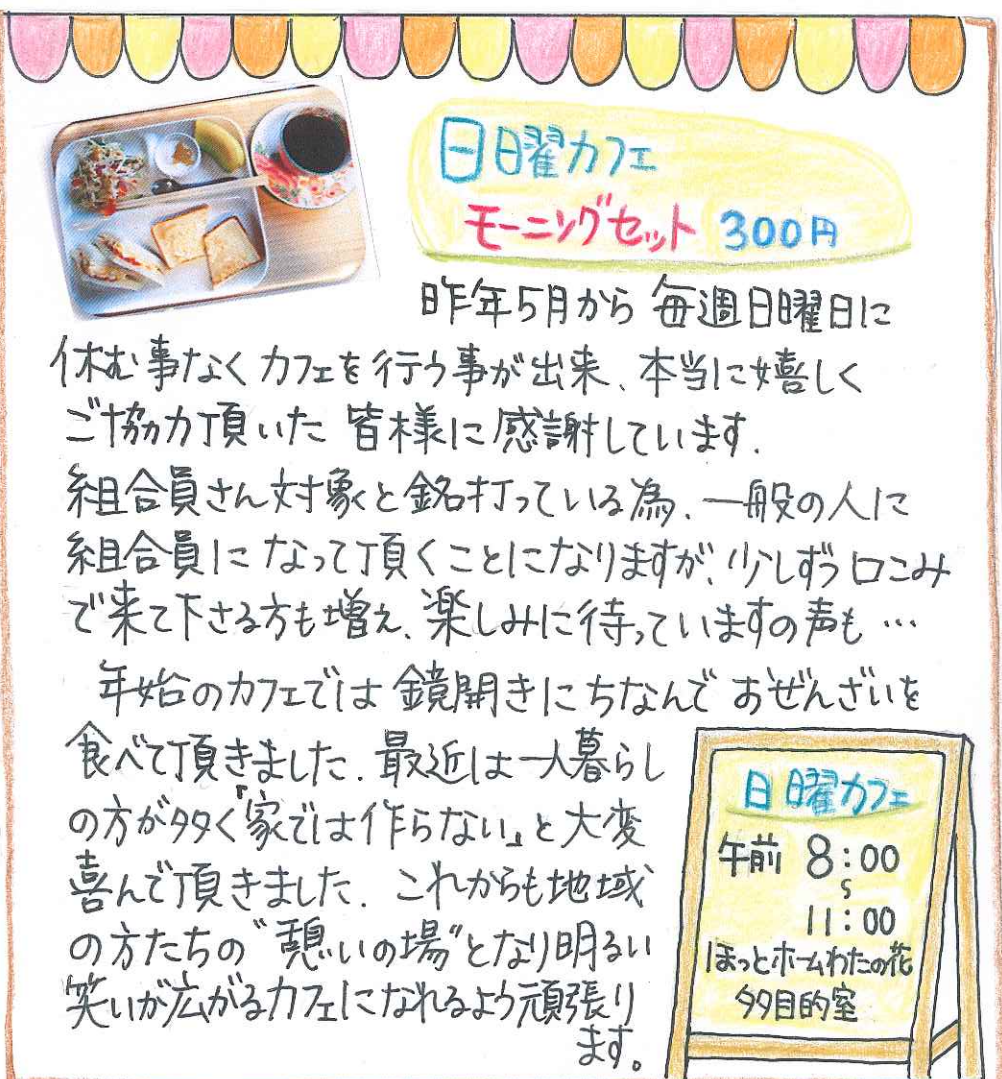 日曜カフェ
モーニングセット 300円
昨年5月から 毎週日曜日に
休む事なくカフェを行う事が出来、本当に嬉しく
ご協力頂いた 皆様に感謝しています.
組合員さん対象と銘打っている為、一般の人に
組合員になって頂くことになりますが、少しずつ口こみ
で来て下さる方も増え、楽しみに待っていますの声も…
年始のカフェでは鏡開きにちなんでおぜんざいを
食べて頂きました. 最近は一人暮らし
の方が多く「家では作らない」と大変
喜んで頂きました. これからも地域
の方たちの“憩いの場”となり明るい
笑いが広がるカフェになれるよう頑張り
ます。
日曜カフェ
午前 8:00
~
11:00
ほっとホームわたの花
多目的室